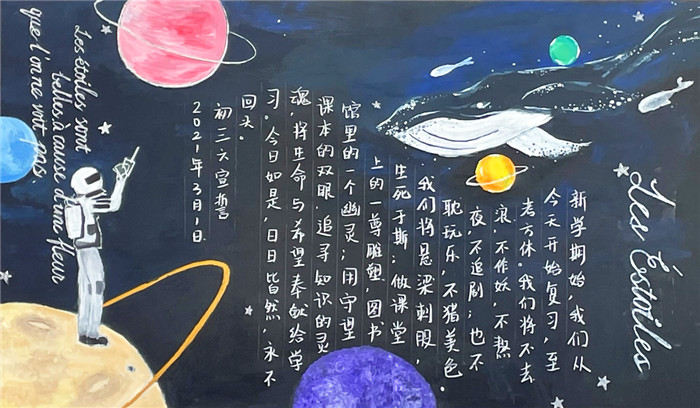 Les Éstoiles
新学期始,我们从
今天开始复习,至
考方休。我们将不去
浪,不作妖,不熬
夜,不追剧;也不
耽玩乐,不猎美色。
我们将悬梁刺股,
生死于斯;做课堂
上的一尊雕塑,图书
馆里的一个幽灵;用守望
课本的双眼,追寻知识的灵
魂,将生命与希望奉献给学
习。今日如是,日日皆然,永不
回头。
初三六宣誓
2021年3月1日
Les étoiles sont
belles, à cause d'une fleur
que l'on ne voit pas.